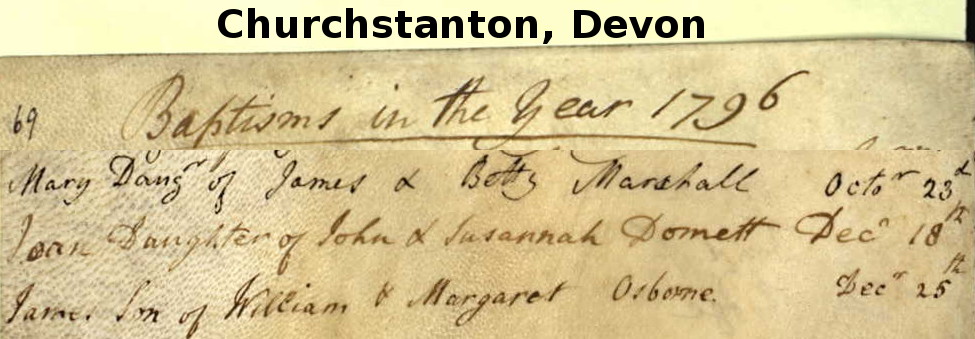 Churchstanton, Devon
69
Baptisms in the Year 1796
Mary Daugr of James & Betty Marshall Octor 23d
Joan Daughter of John & Susannah Domett Decr 18th
James Son of William & Margaret Osborne. Decr 25th